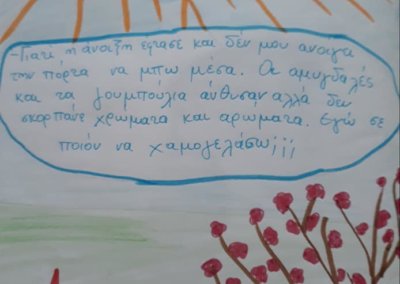 -Γιατί η άνοιξη έφτασε και δέν μου άνοιγε
την πόρτα να μπω μέσα. Οι αμυγδαλές
και τα ζουμπούλια άνθισαν αλλά δεν
σκορπάνε χρώματα και αρώματα. Εγώ σε
ποιόν να χαμογελάσω;;;